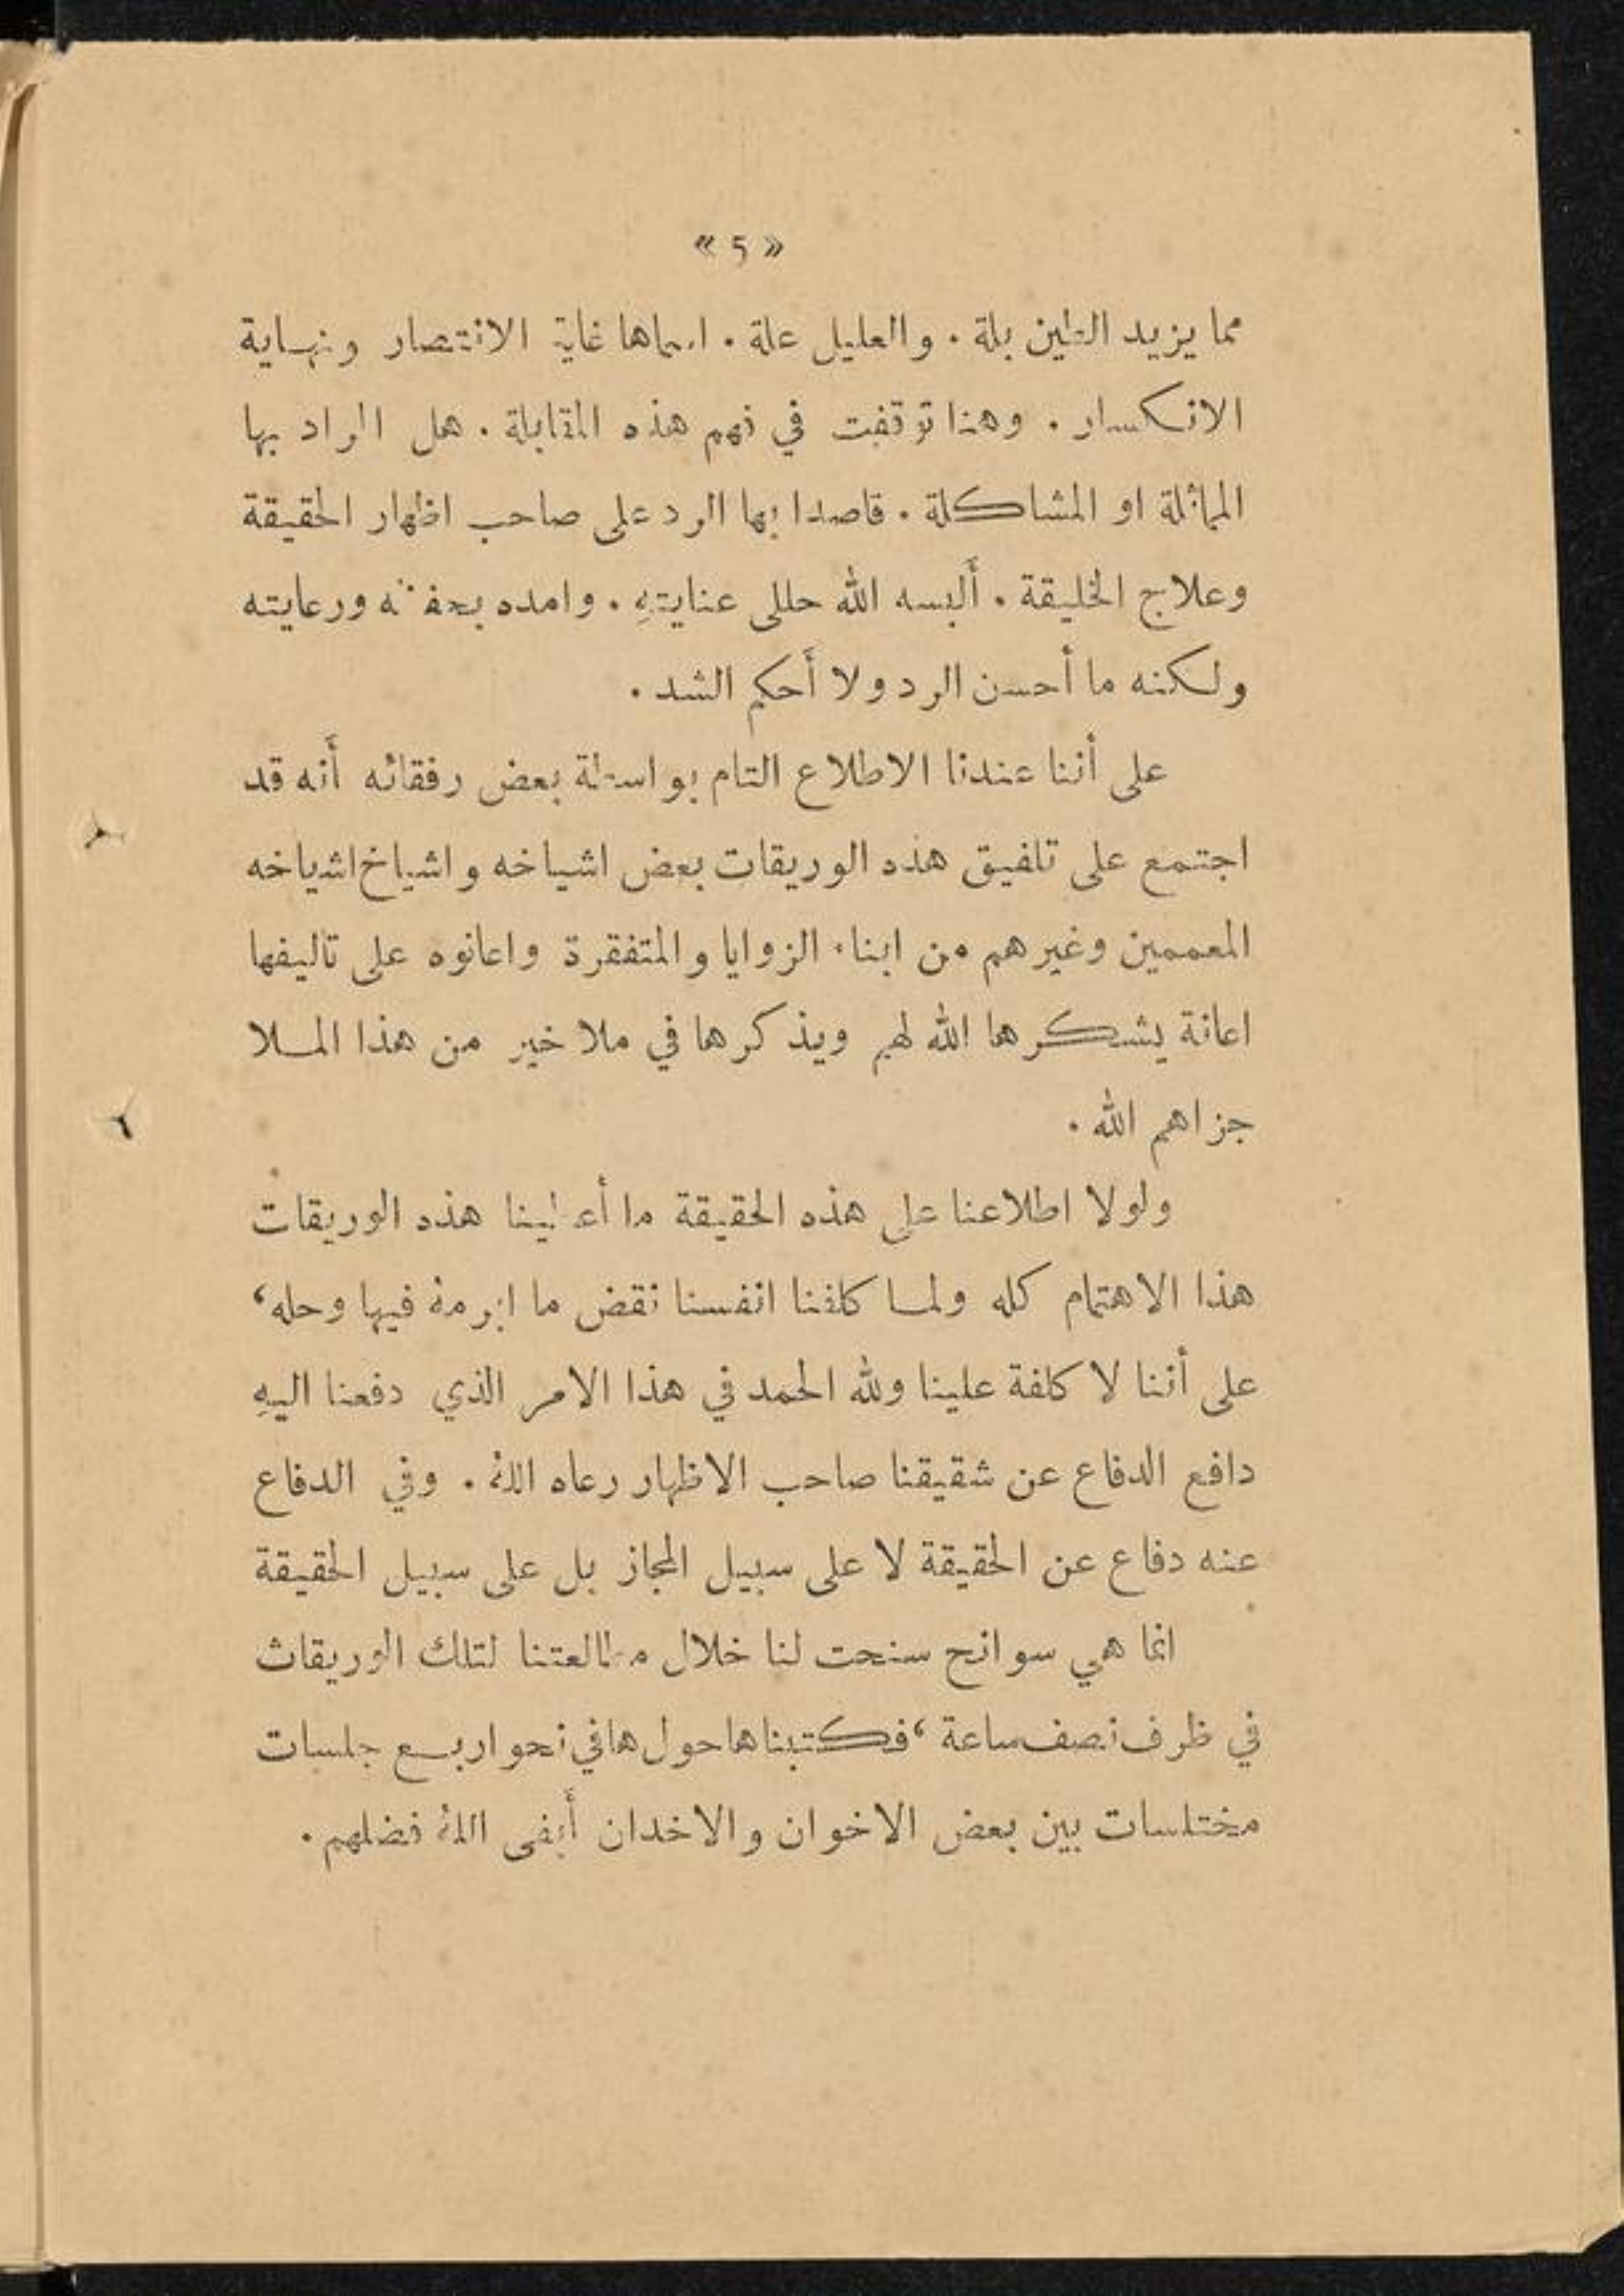 « ٥ »
مما يزيد الطين بلة . والعليل علة . اسماها غاية الانتصار ونهاية
الانكسار . وهنا توقفت في فهم هذه المقابلة . هل المراد بها
المماثلة او المشاكلة . قاصدا بها الرد على صاحب اظهار الحقيقة
وعلاج الخليقة . أَلبسه الله حللى عنايتهِ . وامده بحفظه ورعايته
ولكنه ما أحسن الرد ولا أَحكم الشد .
على أننا عندنا الاطلاع التام بواسطة بعض رفقائه أَنه قد
اجتمع على تلفيق هذه الوريقات بعض اشياخه واشياخ اشياخه
المعممين وغيرهم من ابناء الزوايا والمتفقرة واعانوه على تاليفها
اعانة يشكرها الله لهم ويذكرها في ملا خير من هذا الملا
جزاهم الله .
ولولا اطلاعنا على هذه الحقيقة ما أعطينا هذه الوريقات
هذا الاهتمام كله ولما كلفنا انفسنا نقض ما ابرمه فيها وحله،
على أننا لا كلفة علينا ولله الحمد في هذا الامر الذي دفعنا اليهِ
دافع الدفاع عن شقيقنا صاحب الاظهار رعاه الله . وفي الدفاع
عنه دفاع عن الحقيقة لا على سبيل المجاز بل على سبيل الحقيقة
انما هي سوانح سنحت لنا خلال مطالعتنا لتلك الوريقات
في ظرف نصف ساعة ، فكتبناها حولها في نحو اربع جلسات
مختلسات بين بعض الاخوان والاخدان أَبقى الله فضلهم .